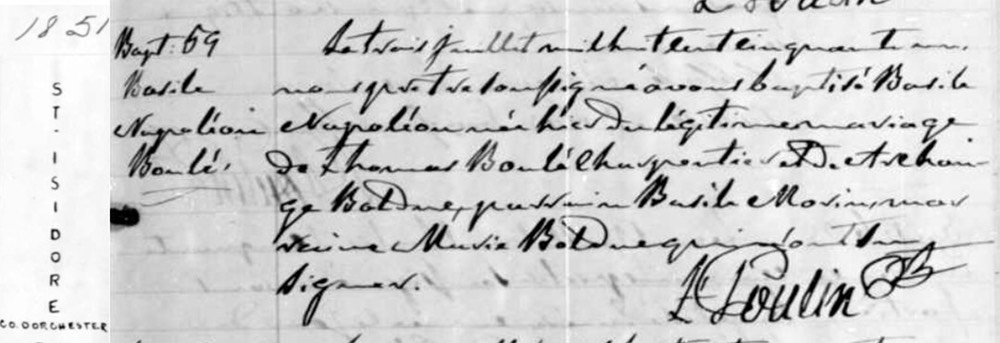 1851
ST. ISIDORE
CO. DORCHESTER
Bapt: 59
Basile
Napoléon
Boulé.
Le trois juillet mil huit cent cinquante un,
nous prêtre soussigné avons baptisé Basile
Napoléon né hier du légitime mariage
de Thomas Boulé Charpentier et De Archan-
ge Bolduc, parrain Basile Morin, mar
raine Marie Bolduc qui n'ont su
signer.
L Poulin